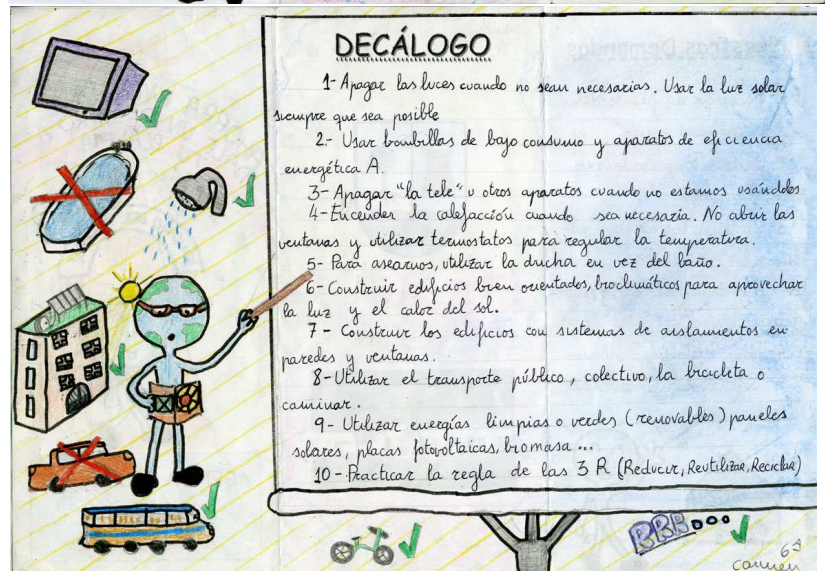 DECÁLOGO
1- Apagar las luces cuando no sean necesarias. Usar la luz solar
siempre que sea posible
2.- Usar bombillas de bajo consumo y aparatos de eficiencia
energética A.
3- Apagar "la tele" u otros aparatos cuando no estamos usándolos
4- Encender la calefacción cuando sea necesaria. No abrir las
ventanas y utilizar termostatos para regular la temperatura.
5- Para asearnos, utilizar la ducha en vez del baño.
6- Construir edificios bien orientados, bioclimáticos para aprovechar
la luz y el calor del sol.
7- Construir los edificios con sistemas de aislamientos en
paredes y ventanas.
8- Utilizar el transporte público, colectivo, la bicicleta o
caminar.
9- Utilizar energías limpias o verdes (renovables) paneles
solares, placas fotovoltaicas, biomasa...
10- Practicar la regla de las 3 R (Reducir, Reutilizar, Reciclar)
RRR...
6º
Carmen